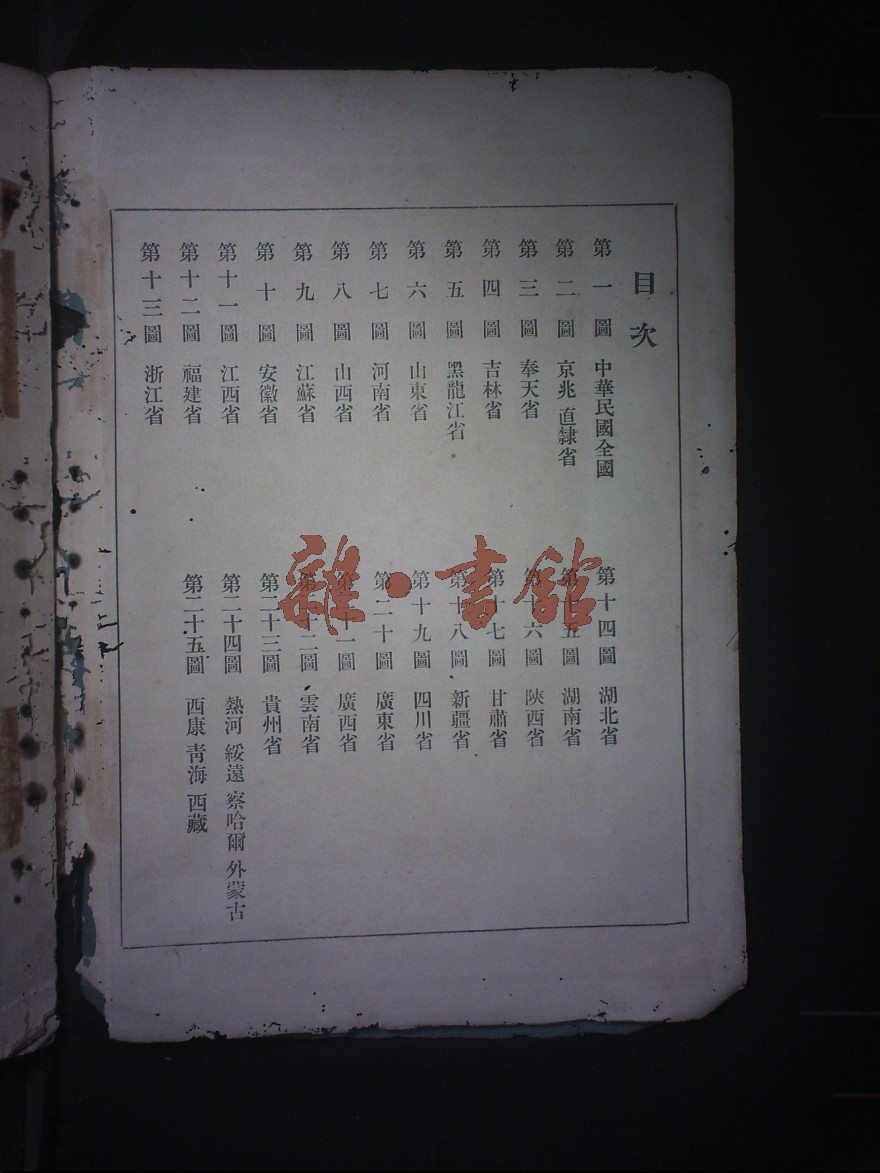 目次
第一圖 中華民國全國
第二圖 京兆 直隸省
第三圖 奉天省
第四圖 吉林省
第五圖 黑龍江省
第六圖 山東省
第七圖 河南省
第八圖 山西省
第九圖 江蘇省
第十圖 安徽省
第十一圖 江西省
第十二圖 福建省
第十三圖 浙江省
第十四圖 湖北省
第十五圖 湖南省
第十六圖 陝西省
第十七圖 甘肅省
第十八圖 新疆省
第十九圖 四川省
第二十圖 廣東省
第二十一圖 廣西省
第二十二圖 雲南省
第二十三圖 貴州省
第二十四圖 熱河 綏遠 察哈爾 外蒙古
第二十五圖 西康 靑海 西藏
雜·書館